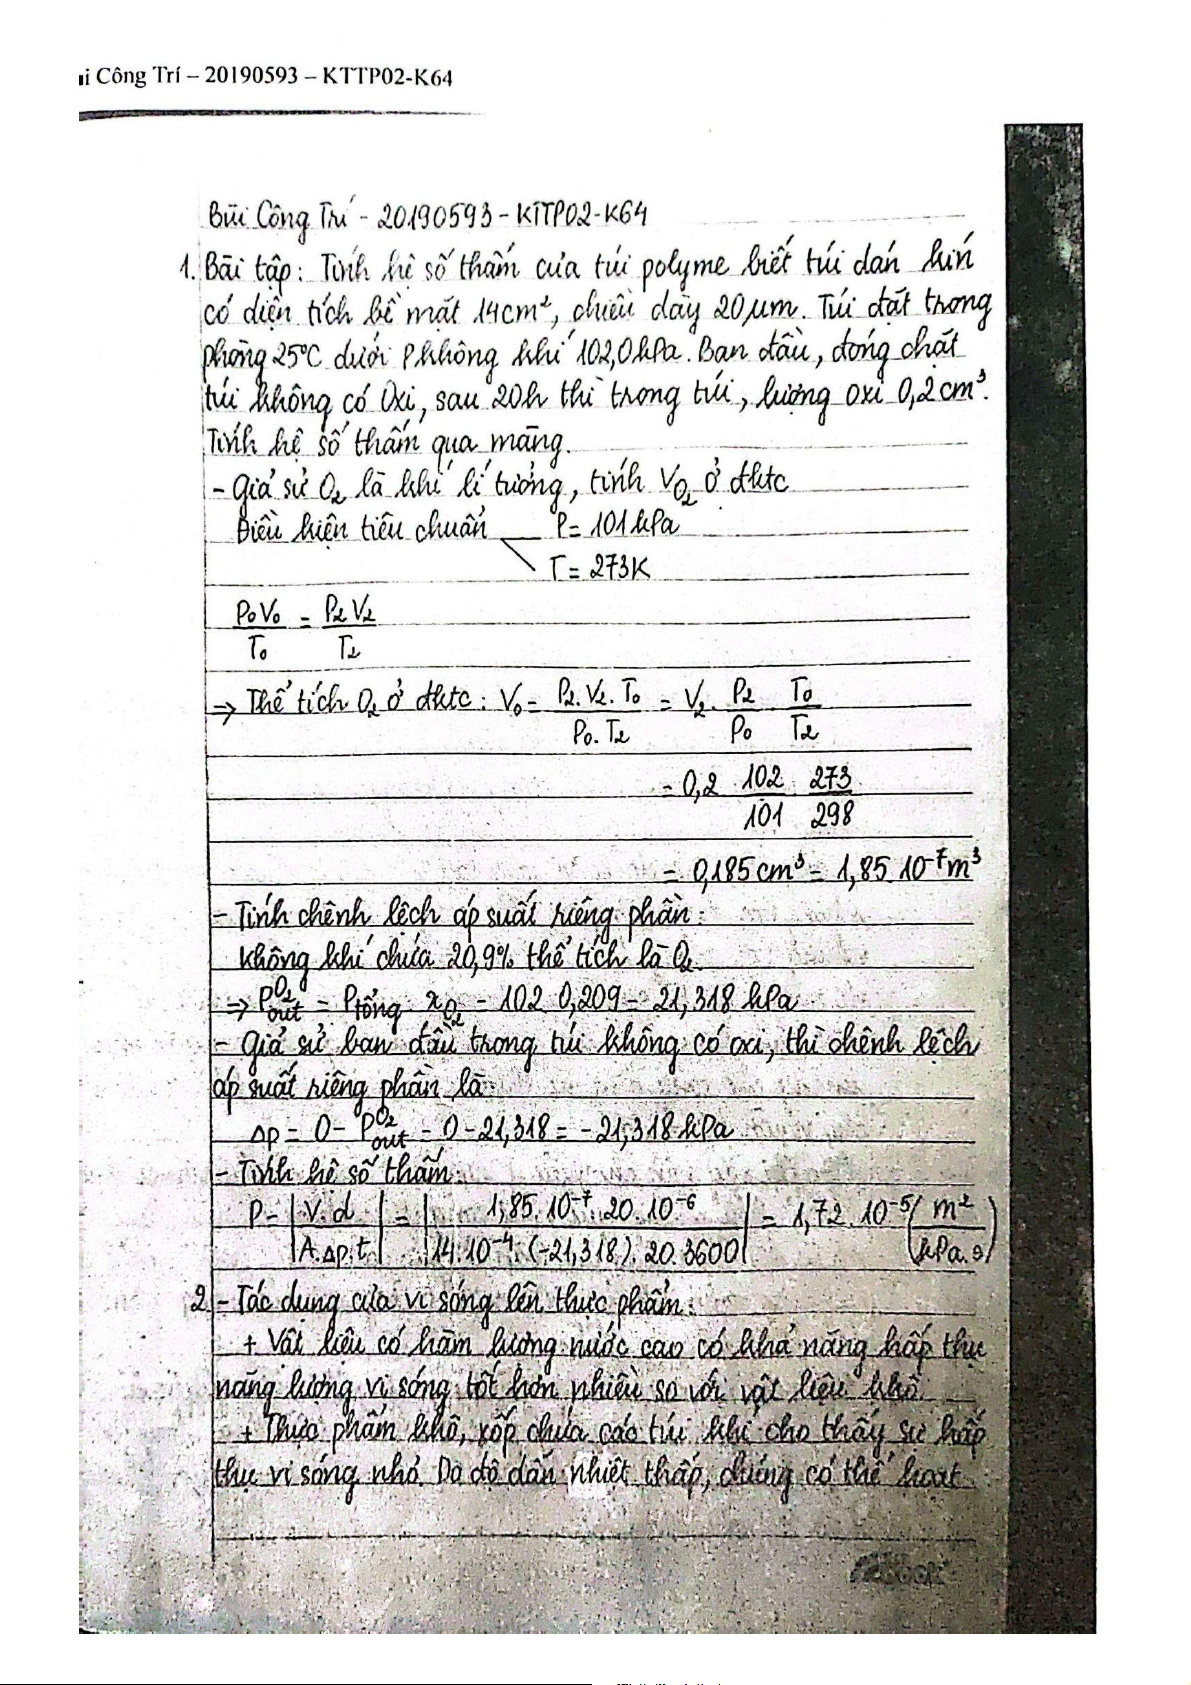 ùi Công Trí – 20190593 – KTTP02-K64
Bùi Công Trí - 20190593 - KTTP02-K64
1. Bài tập: Tính hệ số thấm của túi polyme biết túi dán kín
có diện tích bề mặt 14cm², chiều dày 20μm. Túi đặt trong
phòng 25°C dưới P không khí 102,0kPa. Ban đầu, đóng chặt
túi không có Oxi, sau 20h thì trong túi, lượng oxi 0,2cm³.
Tính hệ số thấm qua màng.
- Giả sử O₂ là khí lí tưởng, tính V_O₂ ở đktc
Điều kiện tiêu chuẩn P = 101 kPa
T = 273K
P₀V₀/T₀ = P₂V₂/T₂
⇒ Thể tích O₂ ở đktc: V₀ = P₂.V₂.T₀/P₀.T₂ = V₂. P₂/P₀ T₀/T₂
= 0,2 . 102/101 . 273/298
= 0,185cm³ = 1,85.10⁻⁷m³
- Tính chênh lệch áp suất riêng phần:
Không khí chứa 20,9% thể tích là O₂.
⇒ P_out^O₂ = P_tổng . x_O₂ = 102.0,209 = 21,318 kPa
- Giả sử ban đầu trong túi không có oxi, thì chênh lệch
áp suất riêng phần là:
Δp = 0 - P_out^O₂ = 0 - 21,318 = -21,318 kPa
- Tính hệ số thấm:
P = |V.d/A.Δp.t| = |1,85.10⁻⁷.20.10⁻⁶/14.10⁻⁴.(-21,318).20.3600| = 1,72.10⁻⁵ (m²/kPa.s)
2. - Tác dụng của vi sóng lên thực phẩm:
+ Vật liệu có hàm lượng nước cao có khả năng hấp thụ
năng lượng vi sóng tốt hơn nhiều so với vật liệu khô.
+ Thực phẩm khô, xốp chứa các túi khí cho thấy sự hấp
thụ vi sóng nhỏ. Do độ dẫn nhiệt thấp, chúng có thể hoạt